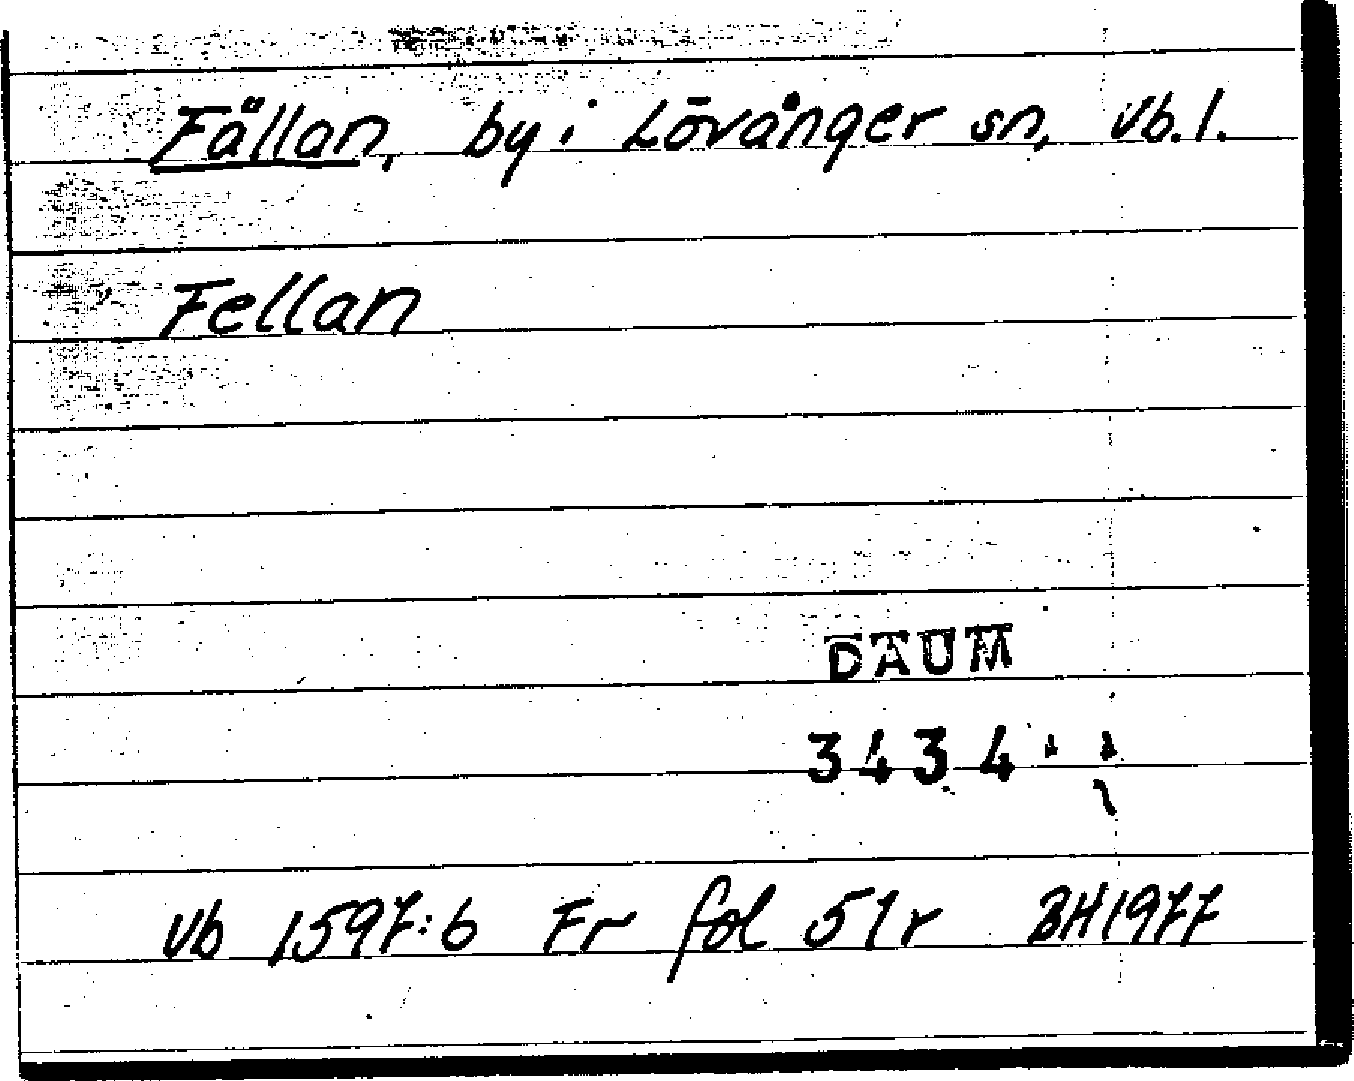 Fällan, by i Lövånger sn, Vb. l.
Fellan
DAUM
3434
Vb 1597:6 Fr fol 51r BH1977